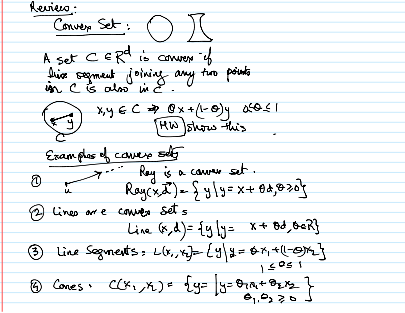 Review:
Convex Set:
A set C ∈ R^d is convex if
line segment joining any two points
in C is also in C.
x, y ∈ C ⇒ θx + (1-θ)y 0≤θ≤1
y
C
HW show this
Examples of convex sets
① Ray is a convex set.
x
Ray(x,d) = { y | y = x + θd, θ≥0 }
② Lines are convex sets
Line (x,d) = { y | y = x + θd, θ∈R }
③ Line Segments: L(x₁, x₂) = { y | y = θx₁ + (1-θ)x₂ }
1 ≤ θ ≤ 1
④ Cones: C(x₁, x₂) = { y = | y = θ₁x₁ + θ₂x₂ }
θ₁, θ₂ ≥ 0